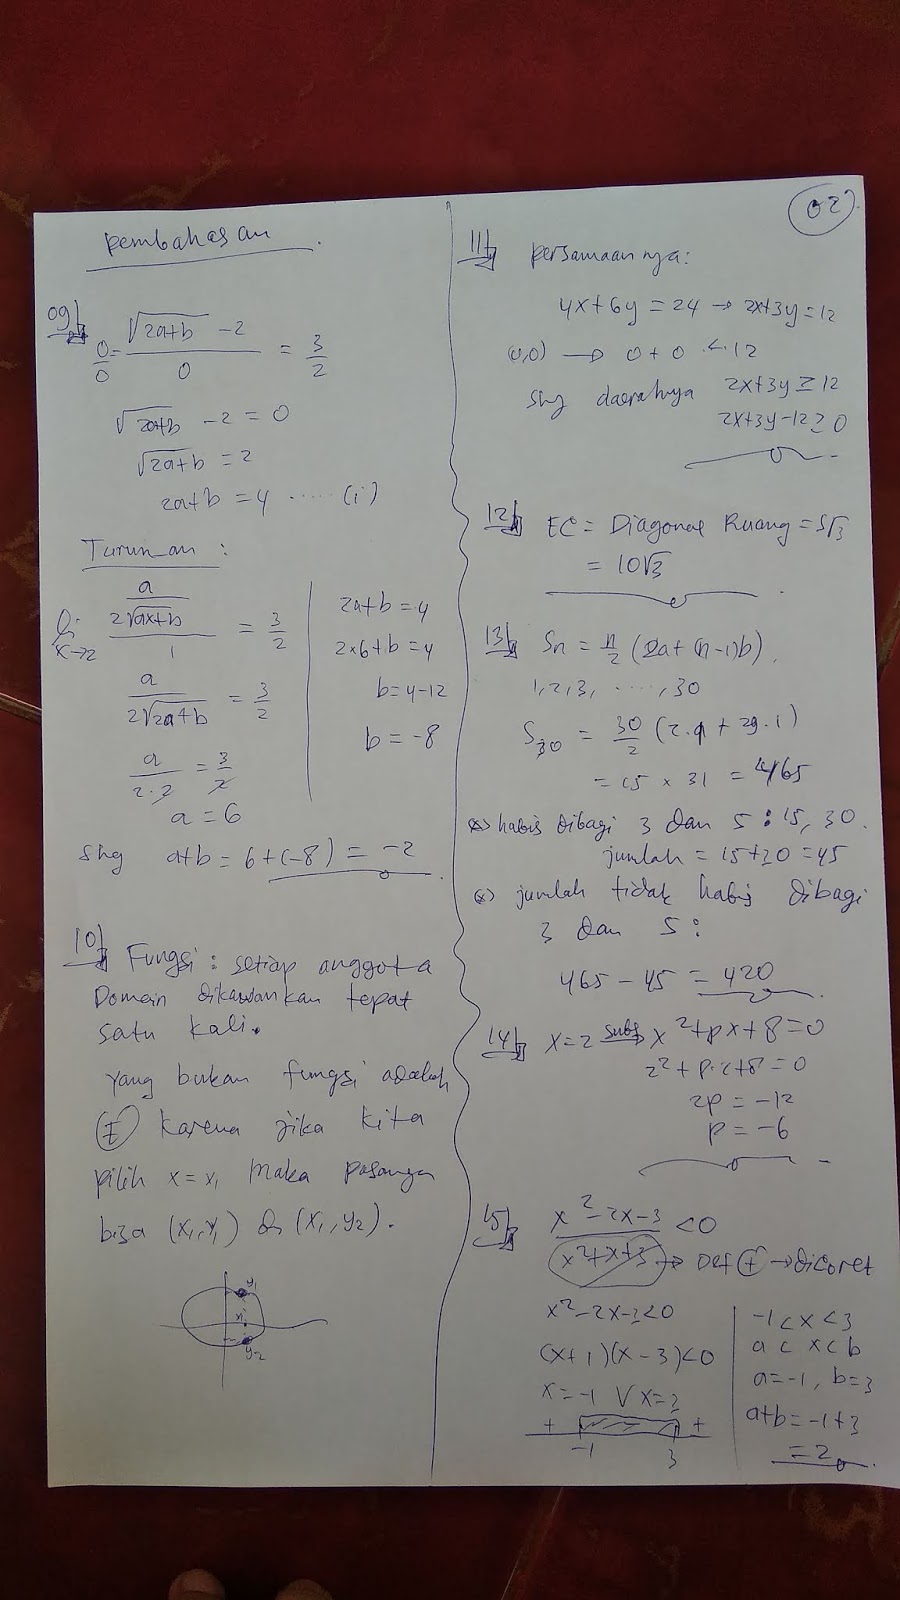 02
pembahasan
09
0/0 = (√(2a+b) - 2)/0 = 3/2
√(2a+b) - 2 = 0
√(2a+b) = 2
2a+b = 4 ..... (i)
Turunan :
Li x→2 (a/(2√(ax+b)))/1 = 3/2
a/(2√(2a+b)) = 3/2
a/(2.2) = 3/2
a = 6
2a+b = 4
2×6+b = 4
b = 4-12
b = -8
shg a+b = 6+(-8) = -2
10
Fungsi : setiap anggota
Domain dikawankan tepat
satu kali.
yang bukan fungsi adalah
(E) karena jika kita
pilih x = x₁ maka pasangan
bisa (x₁,y₁) dn (x₁,y₂).
y₁
x₁
y₂
11
persamaannya:
4x+6y = 24 → 2x+3y = 12
(0,0) → 0 + 0 < 12
shg daerahnya 2x+3y ≥ 12
2x+3y-12 ≥ 0
12
EC = Diagonal Ruang = S√3
= 10√3
13
Sn = n/2 (2a+(n-1)b)
1,2,3, ....., 30
S₃₀ = 30/2 (2.1 + 29.1)
= 15 × 31 = 465
*) habis dibagi 3 dan 5 : 15, 30.
jumlah = 15+30 = 45
*) jumlah tidak habis dibagi
3 dan 5 :
465 - 45 = 420
14
x = 2 subs→ x²+px+8 = 0
2²+p.2+8 = 0
2p = -12
p = -6
15
(x²-2x-3)/(x²+x+3) < 0
→ Def (+) → dicoret
x²-2x-3<0
(x+1)(x-3)<0
x = -1 V x = 3
+ +
-1 3
-1 < x < 3
a < x < b
a = -1, b = 3
a+b = -1+3
= 2